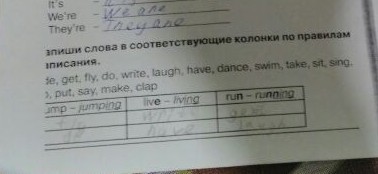 It's
We're – We are
They're – They are
апиши слова в соответствующие колонки по правилам
писания.
get, fly, do, write, laugh, have, dance, swim, take, sit, sing,
put, say, make, clap
ump – jumping live – living run – running
write get
have laugh